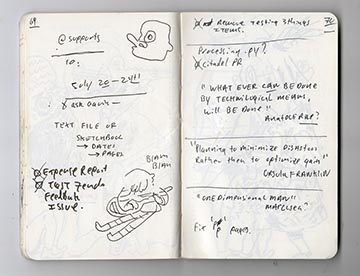 69
@supports
10:
July 20-24th
x ask Dawn -
TEXT FILE OF
SKETCHBOOK
→ DATES
→ PAGES
x Expense Report
x TEST Zendo
Feedback
Issue.
BLAM
BLAM
70
Remove Testing 3 things
Items.
Processing.py?
x citadel PR
"WHAT EVER CAN BE DONE
BY TECHNILOGICAL MEANS,
Will BE DONE"
Anatole
"Planning to minimize disasters
Rather then to optimize gain"
URSULA FRANKLIN
"ONE Dimensional MAN"
MARCUSE?
Fix "P" pages.